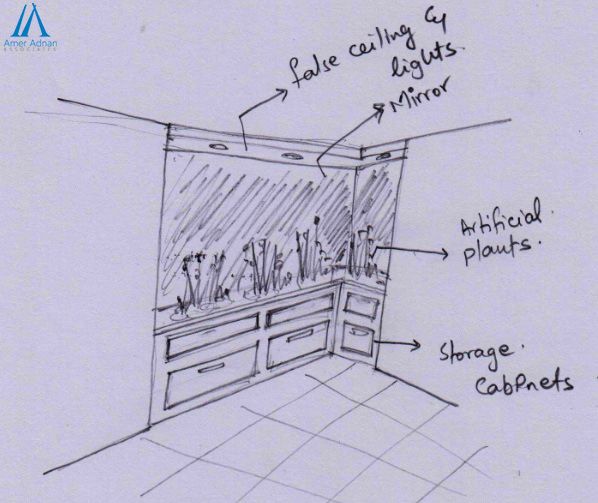 Amer Adnan
ASSOCIATES
false ceiling &
lights.
Mirror
Artificial.
plants.
Storage.
Cabinets